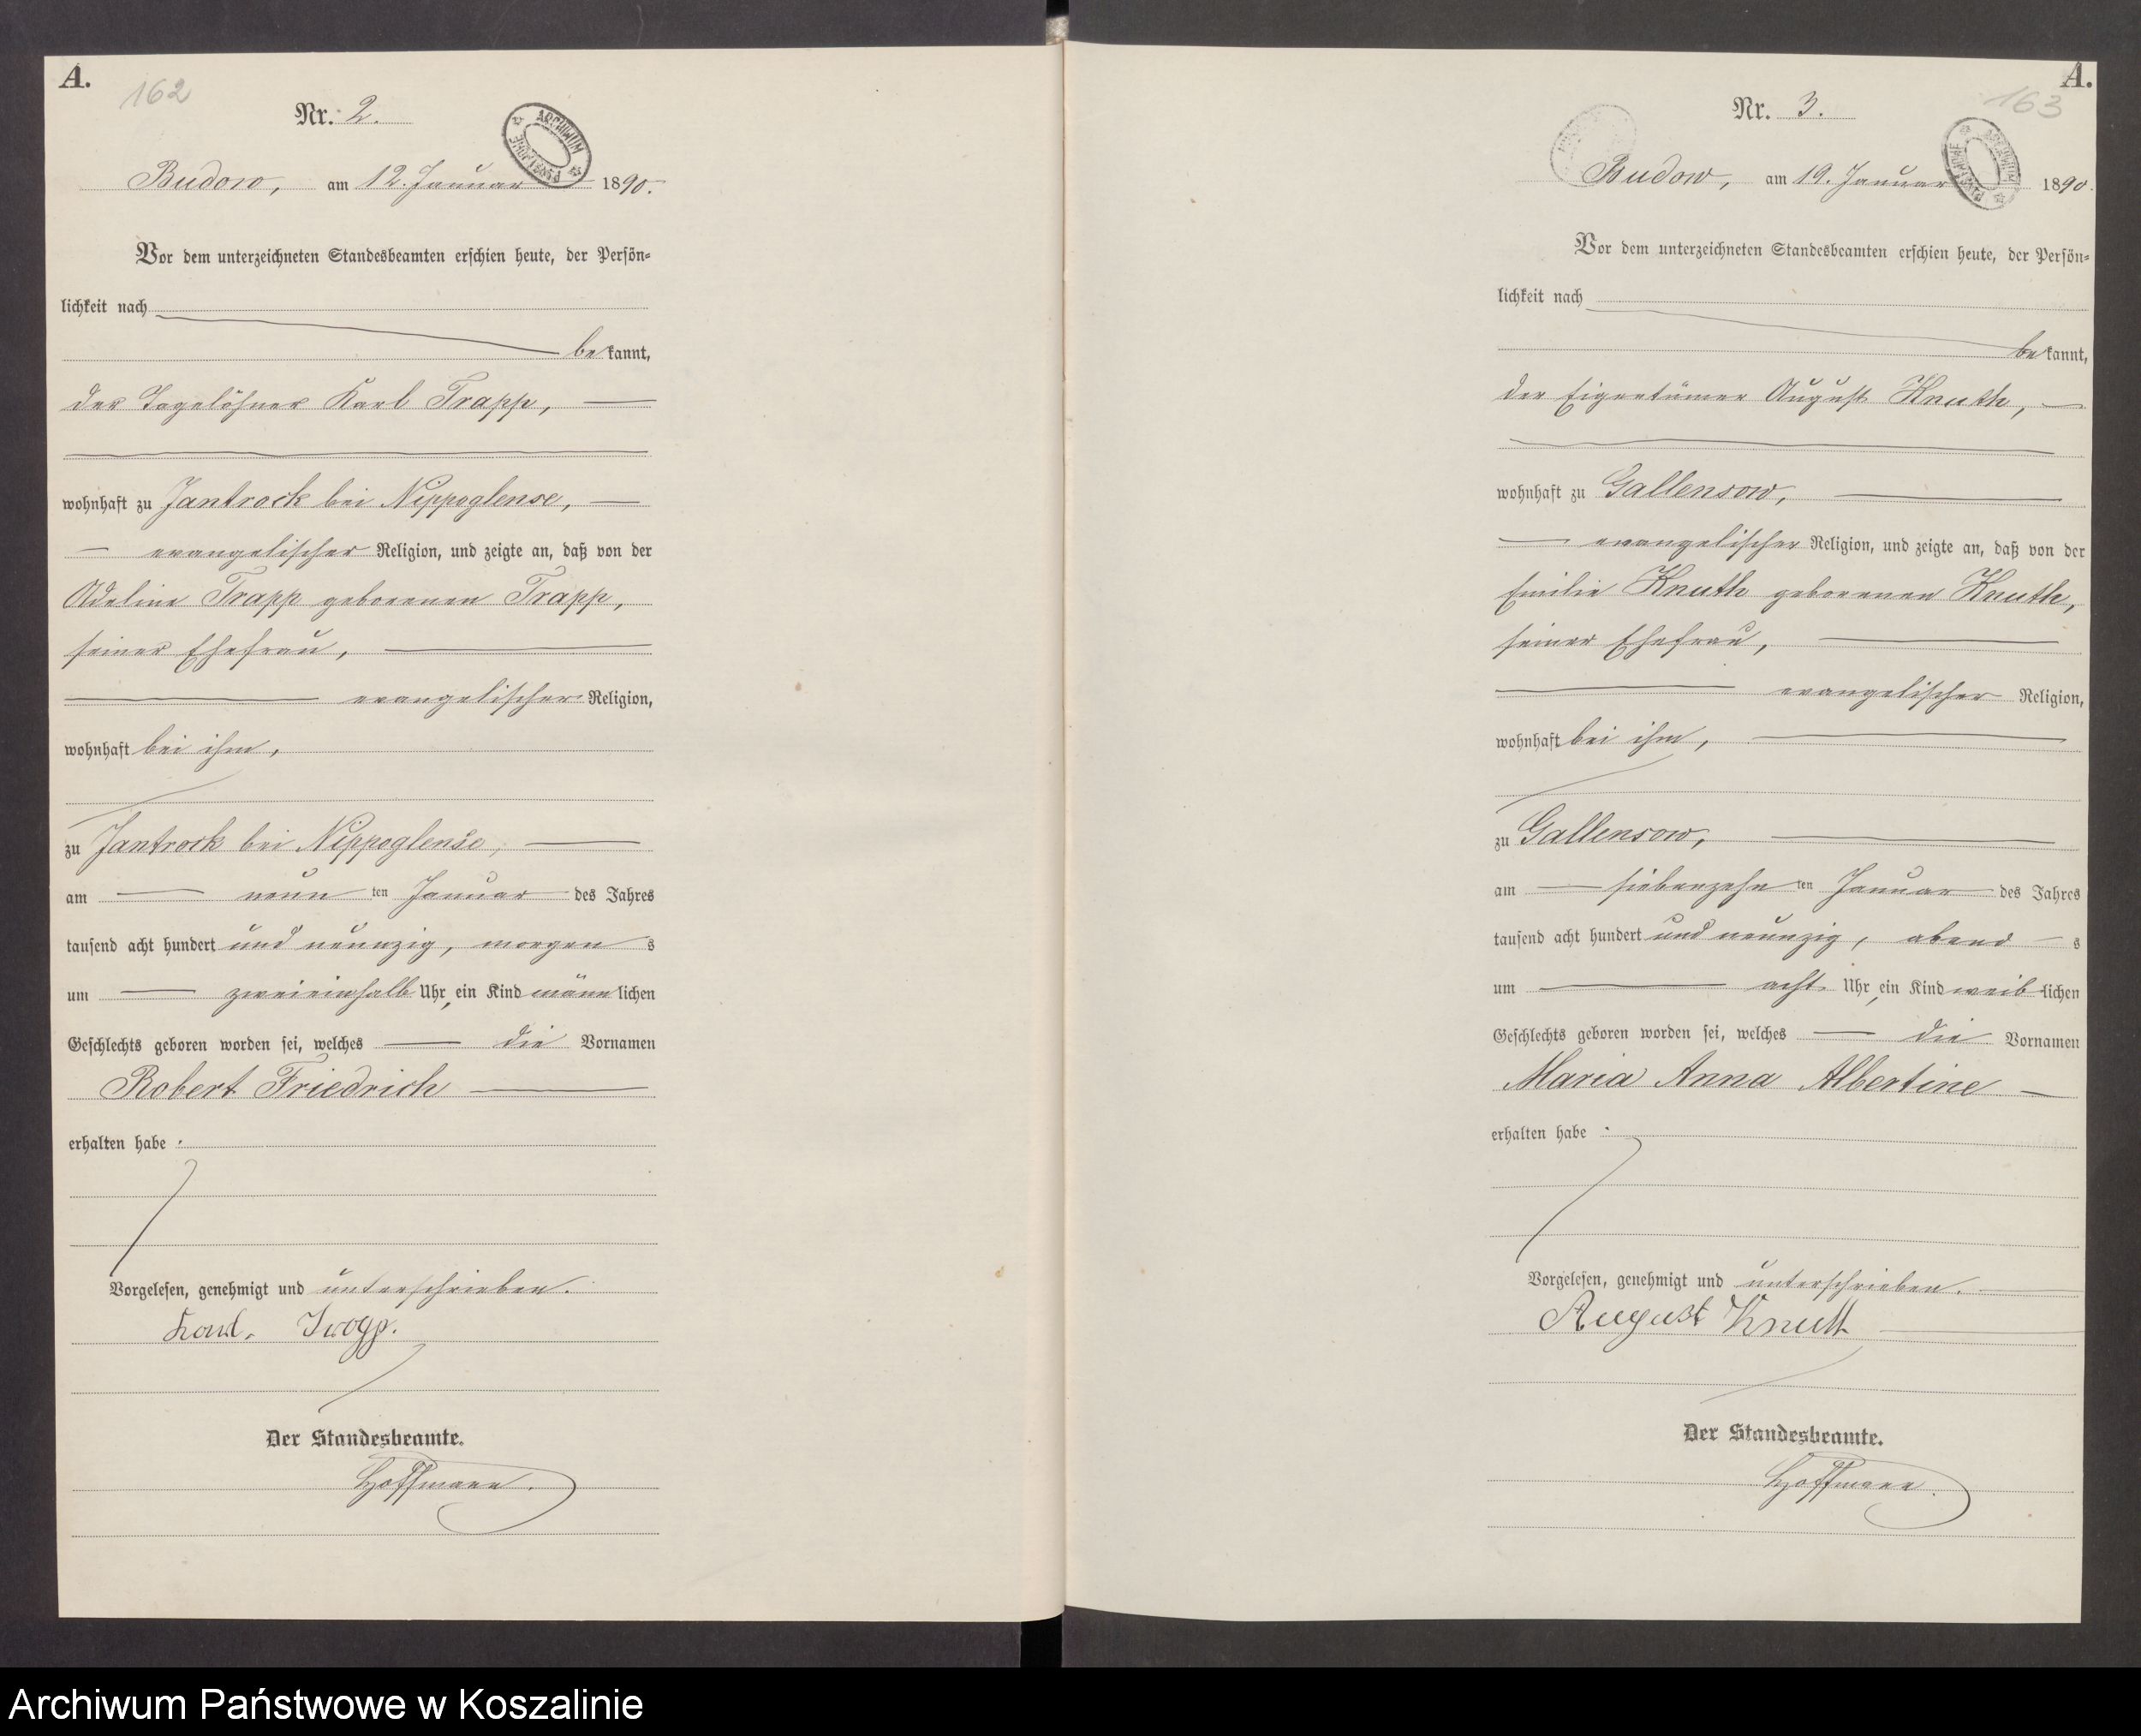 A.
162
Nr. 2.
ARCHIWUM PAŃSTWOWE
Budow, am 12. Januar 1890.
Vor dem unterzeichneten Standesbeamten erschien heute, der Persön-
lichkeit nach
bekannt,
der Tagelöhner Karl Trapp,
wohnhaft zu Jantrock bei Nippoglense,
evangelischer Religion, und zeigte an, daß von der
Adeline Trapp geborenen Trapp,
seiner Ehefrau,
evangelischer Religion,
wohnhaft bei ihm,
zu Jantrock bei Nippoglense,
am neun ten Januar des Jahres
tausend acht hundert und neunzig, morgens
um zweieinhalb Uhr, ein Kind männlichen
Geschlechts geboren worden sei, welches die Vornamen
Robert Friedrich
erhalten habe.
Vorgelesen, genehmigt und unterschrieben.
Karl. Trapp.
Der Standesbeamte.
Hoffmann.
A.
163
Nr. 3.
ARCHIWUM PAŃSTWOWE
Budow, am 19. Januar 1890.
Vor dem unterzeichneten Standesbeamten erschien heute, der Persön-
lichkeit nach
bekannt,
der Eigentümer August Knuth,
wohnhaft zu Gallensow,
evangelischer Religion, und zeigte an, daß von der
Emilie Knuth geborenen Knuth,
seiner Ehefrau,
evangelischer Religion,
wohnhaft bei ihm,
zu Gallensow,
am siebenzehn ten Januar des Jahres
tausend acht hundert und neunzig, abends
um acht Uhr, ein Kind weiblichen
Geschlechts geboren worden sei, welches die Vornamen
Maria Anna Albertine
erhalten habe.
Vorgelesen, genehmigt und unterschrieben.
August Knutt
Der Standesbeamte.
Hoffmann.
Archiwum Państwowe w Koszalinie